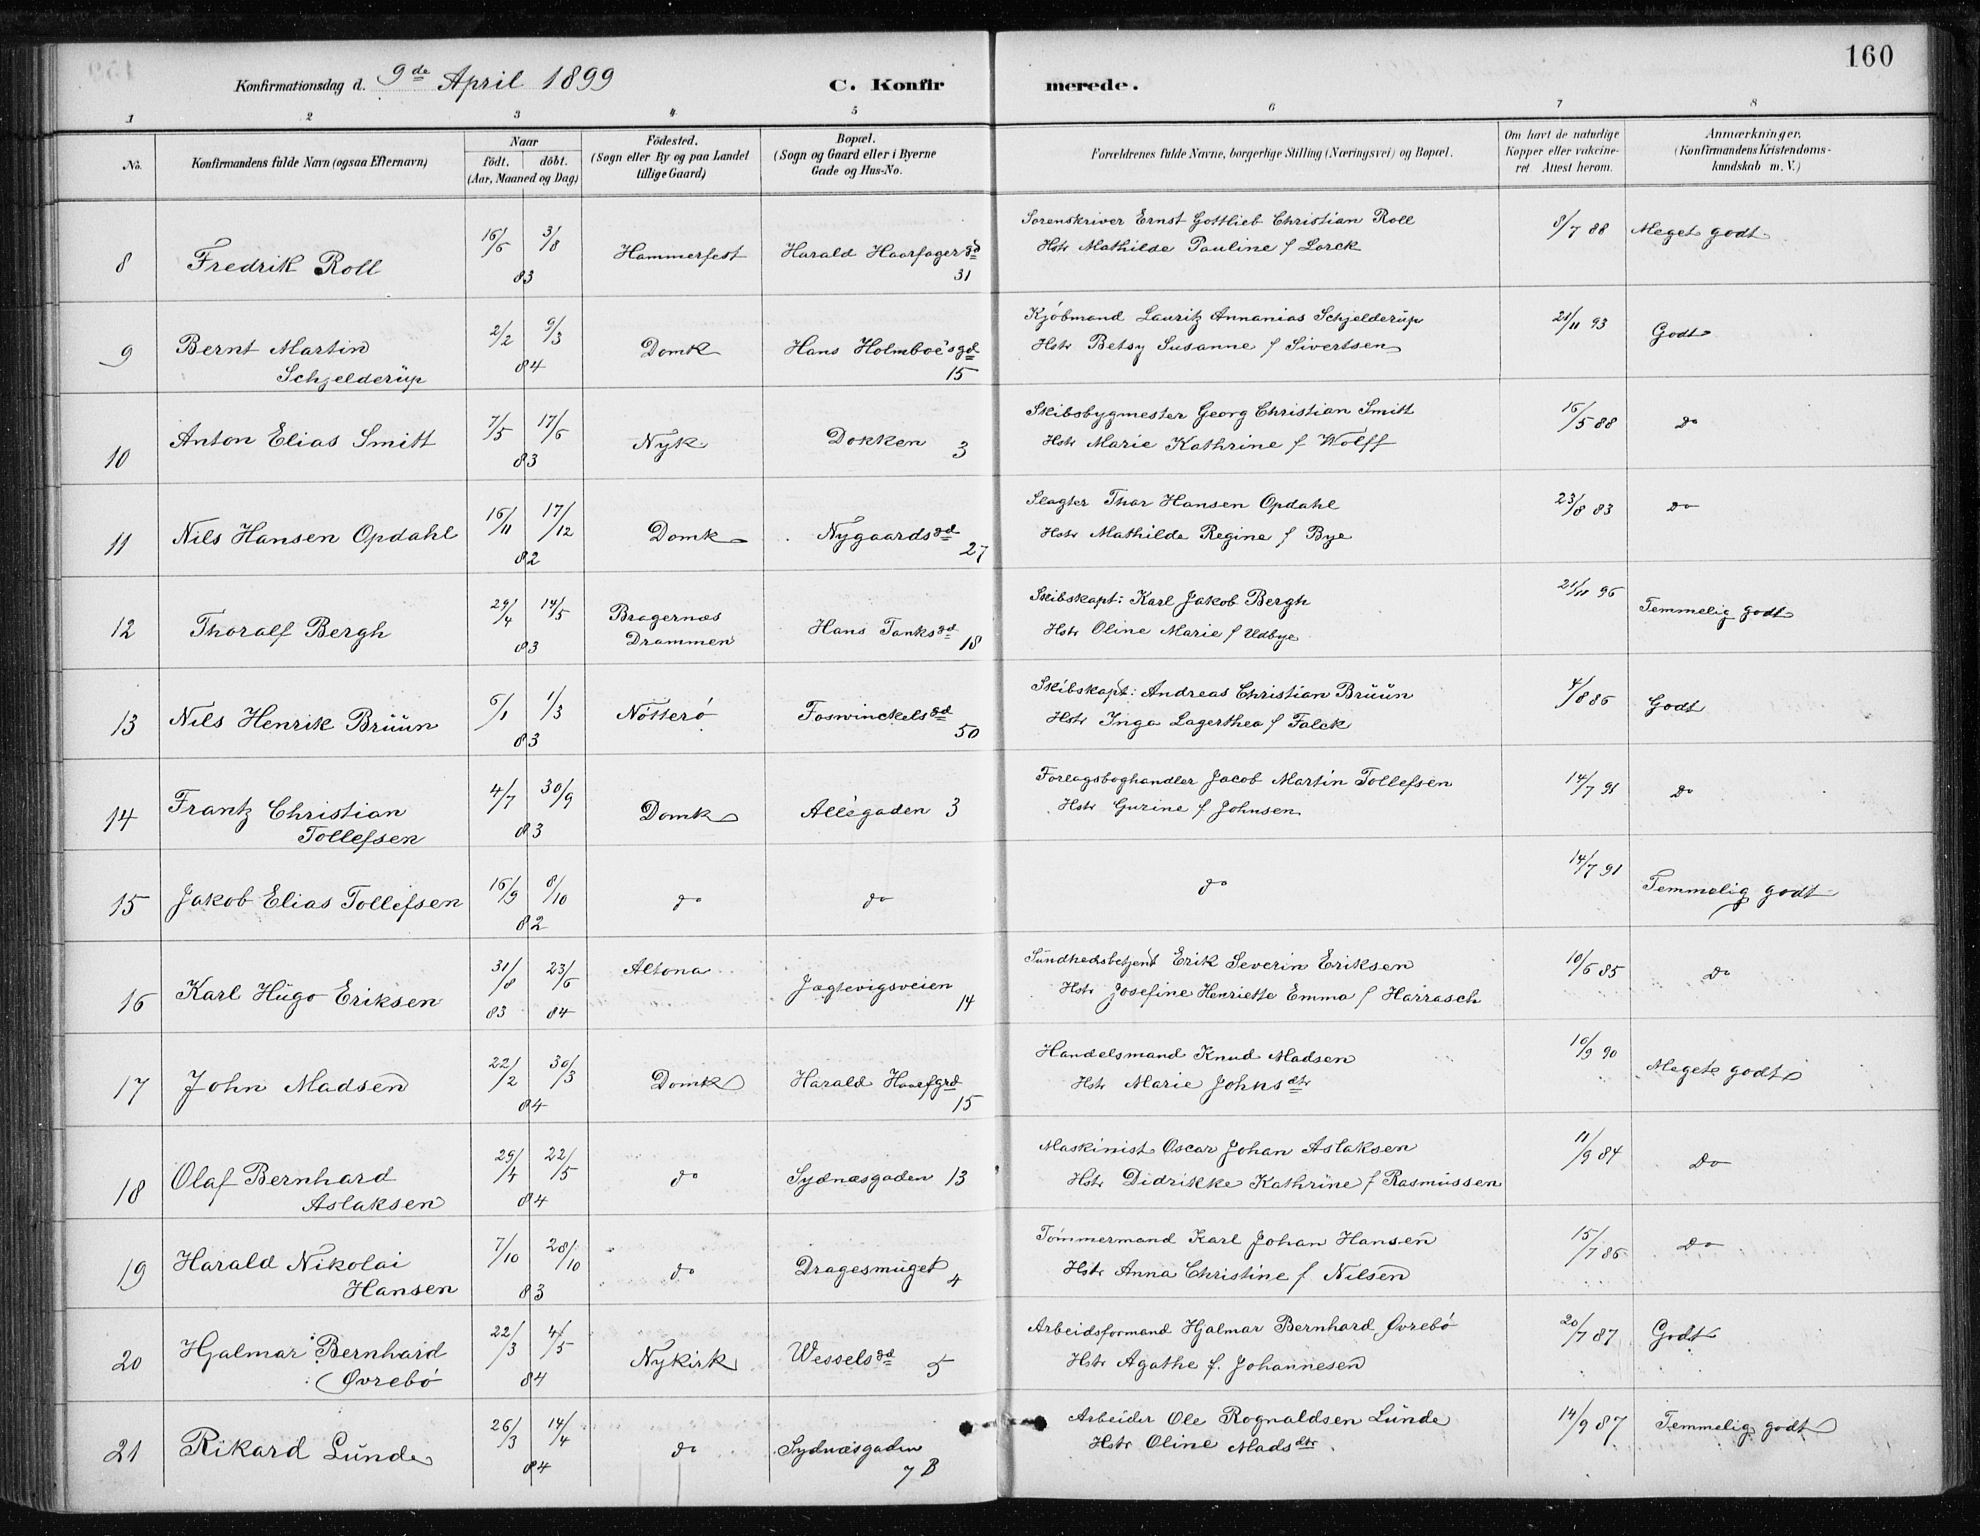 160
Konfirmationsdag d. 9de April 1899 C. Konfirmerede.
1 2 3 4 5 6 7 8
No. Konfirmandens fulde Navn (ogsaa Efternavn) Naar födt. döbt. (Aar, Maaned og Dag) Födested. (Sogn eller By og paa Landet tillige Gaard) Bopæl. (Sogn og Gaard eller i Byerne Gade og Hus-No. Forældrenes fulde Navne, borgerlige Stilling (Næringsvei) og Bopæl. Om havt de naturlige Kopper eller vakcineret Attest herom. Anmærkninger. (Konfirmandens Kristendomskundskab m. V.)
8 Fredrik Roll 16/6 3/8 83 Hammerfest Harald Haarfagergd 31 Sorenskriver Ernst Gottlieb Christian Roll
Hstr Mathilde Pauline f Lorck 8/7 88 Meget godt
9 Bernt Martin Schjelderüp 2/2 9/3 84 Domk Hans Holmboe's gd 15 Kjöbmand Lauritz Annanias Schjelderüp
Hstr Betsy Susanne f Sivertsen 21/11 93 Godt
10 Anton Elias Smitt 7/5 17/6 83 Nyk Dokken 3 Skibsbygmester Georg Christian Smitt
Hstr Marie Kathrine f Wolff 16/5 88 do
11 Nils Hansen Opdahl 16/11 17/12 82 Domk Nygaardsgd 27 Slagter Thor Hansen Opdahl
Hstr Mathilde Regine f Bye 23/8 83 do
12 Thoralf Bergh 29/4 14/5 83 Bragernæs Drammen Hans Tanksgd 18 Skibskapt: Karl Jakob Bergh
Hstr Oline Marie f Udbye 21/11 96 Temmelig godt
13 Nils Henrik Brüün 6/1 1/3 83 Nötterö Foswinckelsgd 50 Skibskapt: Andreas Christian Brüün
Hstr Inga Lagerthea f Falck 4/8 86 Godt
14 Frantz Christian Tollefsen 4/7 30/9 83 Domk Allégaden 3 Forlagsboghandler Jacob Martin Tollefsen
Hstr Gurine f Johnsen 14/7 91 do
15 Jakob Elias Tollefsen 16/9 8/10 82 do do do 14/7 91 Temmelig godt
16 Karl Hügo Eriksen 31/8 83 23/6 84 Altona Jægtevigsveien 14 Sündhedsbetjent Erik Severin Eriksen
Hstr Josefine Henriette Emma f Harrasch 10/6 85 do
17 John Madsen 22/2 30/3 84 Domk Harald Haarfgrd 15 Handelsmand Knud Madsen
Hstr Marie Johnsdtr 10/9 90 Megete godt
18 Olaf Bernhard Aslaksen 29/4 22/5 84 do Sydnæsgaden 13 Maskinist Oscar Johan Aslaksen
Hstr Didrikke Kathrine f Rasmüssen 11/9 84 do
19 Harald Nikolai Hansen 7/10 28/10 83 do Dragesmüget 4 Tömmermand Karl Johan Hansen
Hstr Anna Christine f Nilsen 15/7 86 do
20 Hjalmar Bernhard Øvrebö 22/3 4/5 84 Nykirk Wesselsgd 5 Arbeidsformand Hjalmar Bernhard Øvrebö
Hstr Agathe f. Johannesen 20/7 87 Godt
21 Rikard Lünde 26/3 14/4 84 do Sydnæsgaden 7 B Arbeider Ole Rognaldsen Lünde
Hstr Oline Madsdtr. 14/9 87 Temmelig godt